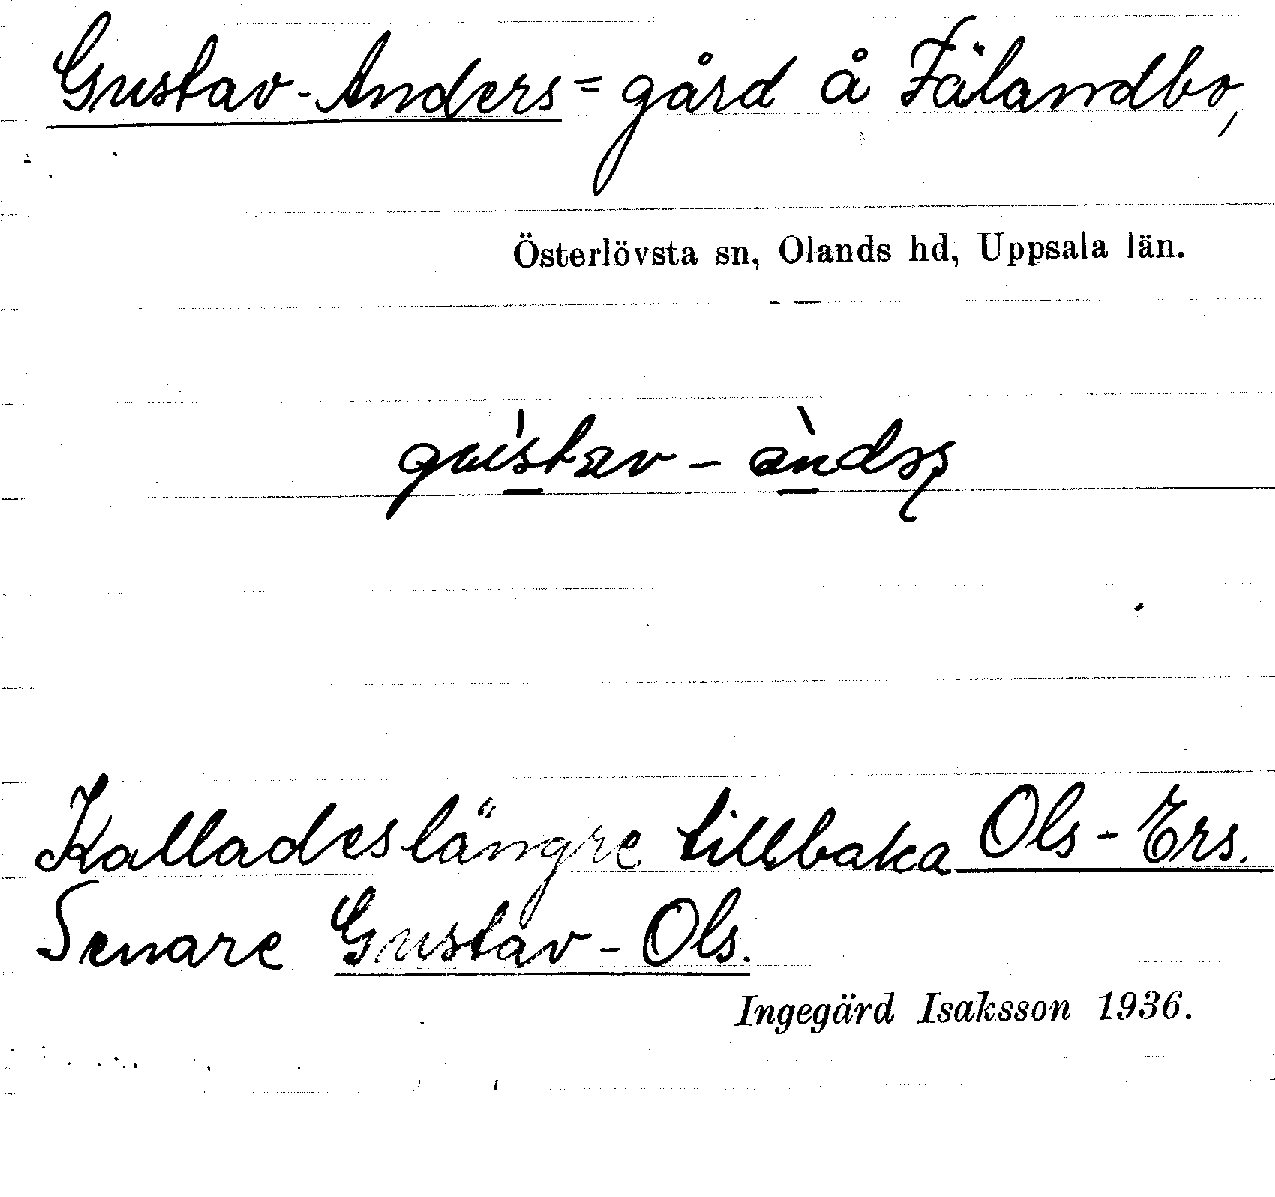 Gustav-Anders = gård å Fälandbo,
Österlövsta sn, Olands hd, Uppsala län.
gústav - àndəʂ
Kallades längre tillbaka Ols-Ers.
Senare Gustav-Ols.
Ingegärd Isaksson 1936.